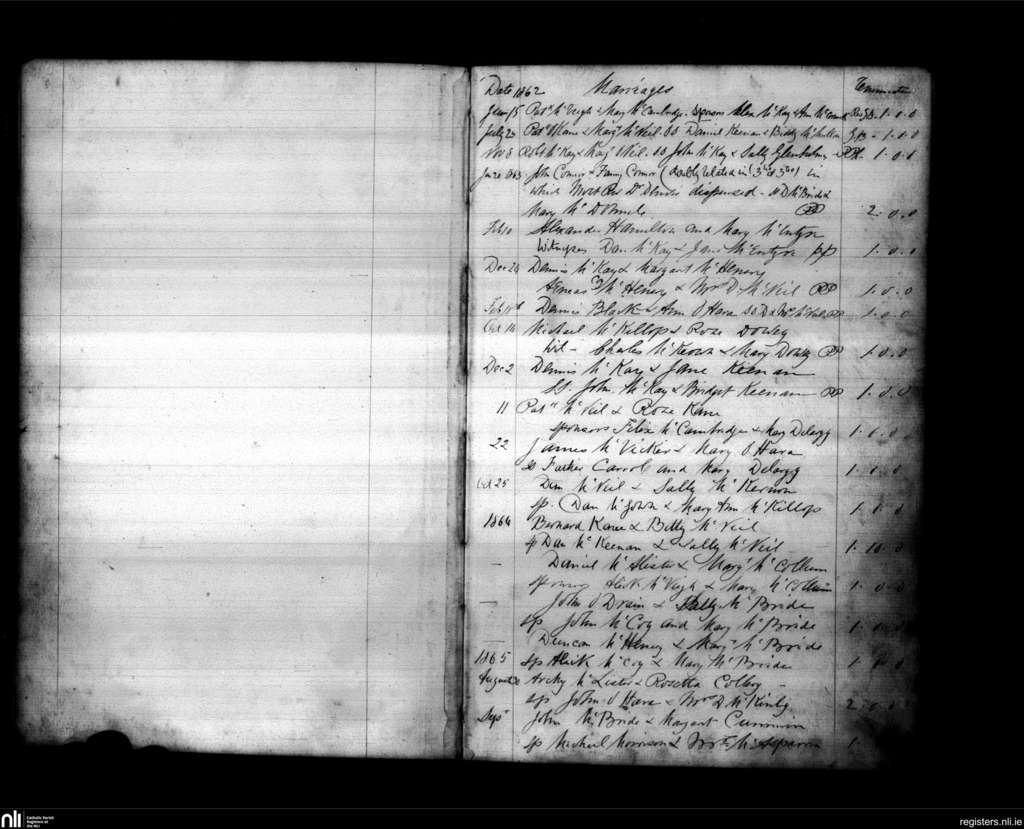 Date 1862 Marriages
June 15 Patk McVeigh & Mary McCambridge sponsors Alexr McKay & Ann 1.0.0
July 23 Patk & Margt McNeil SS Daniel Keenan & Biddy McMullen 1.0.0
Nov 8 Robt McKay & Margt Neil. SS John McKay & Sally PP. 1.0.0
Jan 20 1863 John Connor & Fanny Connor (doubly related in (3d & 3d) in
which Most Rev Dr Denvir dispensed - SS D McBride &
Mary McDonnell PP 2.0.0
Feb 10 Alexander Hamilton and Mary McEntyre
Witnesses Dan McKay & Jane McEntyre PP 1.0.0
Dec 24 Dennis McKay & Margaret McHenry
Aeneas McHenry & Mrs D. McNeil PP 1.0.0
Feb Dennis Black & Ann O Hara SS D & PP 1.0.0
Oct 14 Michael McKillop & Rose Dowey
Wit - Charles McKeown & Mary Dowey PP 1.0.0
Dec 2 Dennis McKay & Jane Keenan
SS. John McKay & Bridget Keenan PP 1.0.0
11 Patk McNeil & Rose Kane
sponsors Felix McCambridge & Mary Delargy 1.0.0
22 James McVicker & Mary O Hara
SS Father Carrol and Mary Delargy 1.0.0
Oct 25 Dan McNeil & Sally McKernon
sp. Dan McGown & Mary Ann McKillop
1864 Bernard Kane & Betty McNeil
sp Dan McKeenan & Sally McNeil 1.10.0
— Daniel McAlister & Mary McCollum
sponsors Alick McVeigh & Mary McCollum 1.0.0
— John O Drain & Sally McBride
sp John McCoy and Mary McBride
— Duncan McHenry & Mary McBride
1865 sp Alick McCoy & Mary McBride
August Archy McLister & Rosetta Colbry -
sp John O Hara & Mrs D. McKinly 2.0.0
Sepr John McBride & Margaret Cummin
sp Michael Morrison & 1.
nli
Catholic Parish
Registers at
the NLI
registers.nli.ie